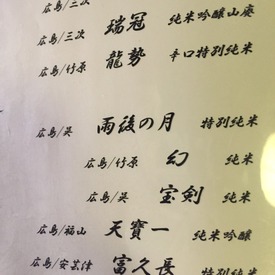 広島/三次
広島/三次 瑞冠 純米吟醸山廃
広島/竹原 龍勢 辛口特別純米
広島/呉 雨後の月 特別純米
広島/竹原 幻 純米
広島/呉 宝剣 純米
広島/福山 天寶一 純米吟醸
広島/安芸津 富久長 特別純米